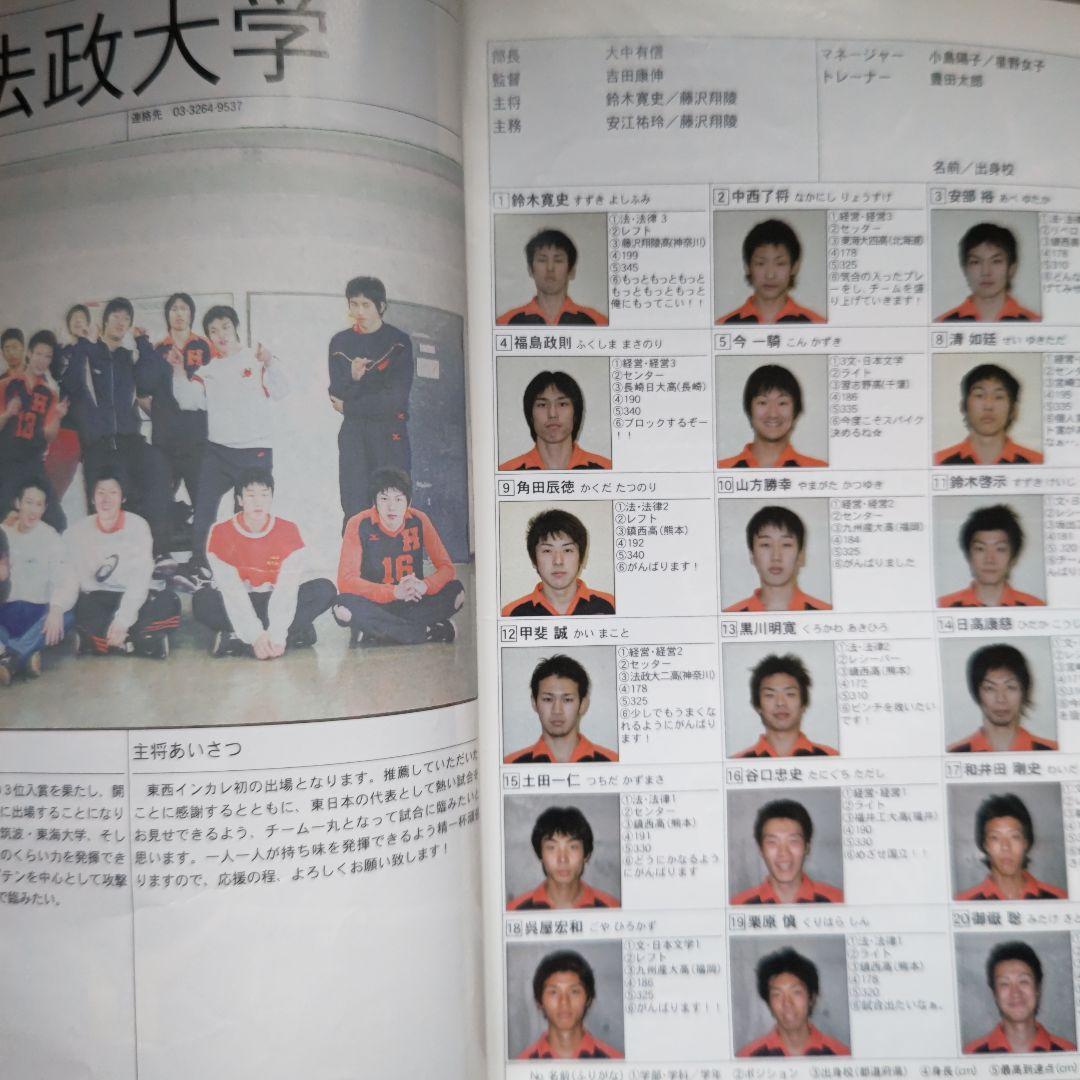 法政大学
連絡先 03-3264-9537
主将あいさつ
東西インカレ初の出場となります。推薦していただいた
ことに感謝するとともに、東日本の代表として熱い試合を
お見せできるよう、チーム一丸となって試合に臨みたいと
思います。一人一人が持ち味を発揮できるよう精一杯頑張
りますので、応援の程、よろしくお願い致します!
3位入賞を果たし、開
に出場することになり
筑波・東海大学、そし
のくらい力を発揮でき
テンを中心として攻撃
で臨みたい。
部長 大中有信
監督 吉田康伸
主将 鈴木寛史/藤沢翔陵
主務 安江祐玲/藤沢翔陵
マネージャー 小島陽子/星野女子
トレーナー 豊田太郎
名前/出身校
1 鈴木寛史 すずき よしふみ
①法・法律 3
②レフト
③藤沢翔陵高(神奈川)
④199
⑤345
⑥もっともっともっと
もっともっともっと
俺にもってこい!!
2 中西了将 なかにし りょうすけ
①経営・経営3
②セッター
③東海大四高(北海道)
④178
⑤325
⑥気合の入ったプレ
ーをし、チームを盛
り上げていきます!
3 安部 裕 あべ ゆたか
①法・法
②リベロ
④178
⑤310
⑥どん
げてみせ
4 福島政則 ふくしま まさのり
①経営・経営3
②センター
③長崎日大高(長崎)
④190
⑤340
⑥ブロックするぞー
!!
5 今 一騎 こん かずき
①3文・日本文学
②ライト
③習志野高(千葉)
④186
⑤335
⑥今度こそスパイク
決めるね☆
8 清 如廷 ぜい ゆきただ
①経営
②セン
③宮崎
④195
⑤335
⑥個人
なぁ…
9 角田辰徳 かくだ たつのり
①法・法律2
②レフト
③鎮西高(熊本)
④192
⑤340
⑥がんばります!
10 山方勝幸 やまがた かつゆき
①経営・経営2
②センター
③九州産大高(福岡)
④184
⑤325
⑥がんばりました
11 鈴木啓示 すずき けいじ
①文・日
②レシー
④181
⑤320
⑥チー
んばり
12 甲斐 誠 かい まこと
①経営・経営2
②セッター
③法政大二高(神奈川)
④178
⑤325
⑥少しでもうまくな
れるようにがんばり
ます!
13 黒川明寛 くろかわ あきひろ
①法・法律2
②レシーバー
③鎮西高(熊本)
④172
⑤310
⑥ピンチを救いたい
です!
14 日高康慈 ひだか こうじ
①文・
②レシ
15 土田一仁 つちだ かずまさ
①法・法律1
②センター
③鎮西高(熊本)
④191
⑤330
⑥どうにかなるよう
にがんばります
16 谷口忠史 たにぐち ただし
①経営・経営1
②ライト
③福井工大高(福井)
④190
⑤330
⑥めざせ国立!!
17 和井田 剛史 わいだ
18 呉屋宏和 ごや ひろかず
①文・日本文学1
②レフト
③九州産大高(福岡)
④186
⑤325
⑥がんばります!!
19 栗原 慎 くりはら しん
①法・法律1
②ライト
③鎮西高(熊本)
④178
⑤320
⑥試合出たいなぁ。
20 御嶽 聡 みたけ さと
No 名前(ふりがな) ①学部・学科/学年 ②ポジション ③出身校(都道府県) ④身長(cm) ⑤最高到達点(cm)
H
13
H
16